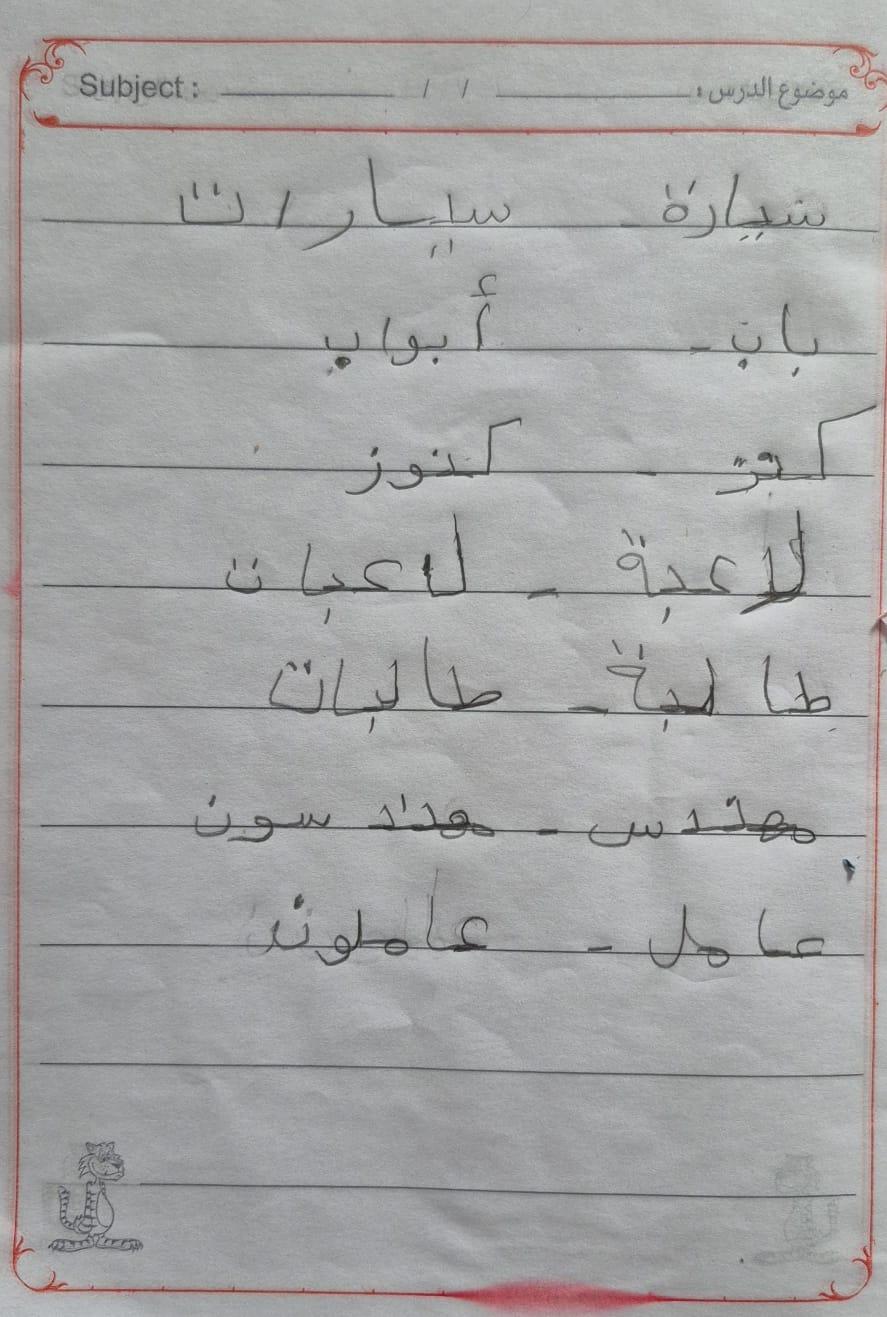 Subject : / / موضوع الدرس :
سيارة - سيارات
باب - أبواب
كنز - كنوز
لاعبة - لاعبات
طالبة - طالبات
مهندس - مهندسون
عامل - عاملون